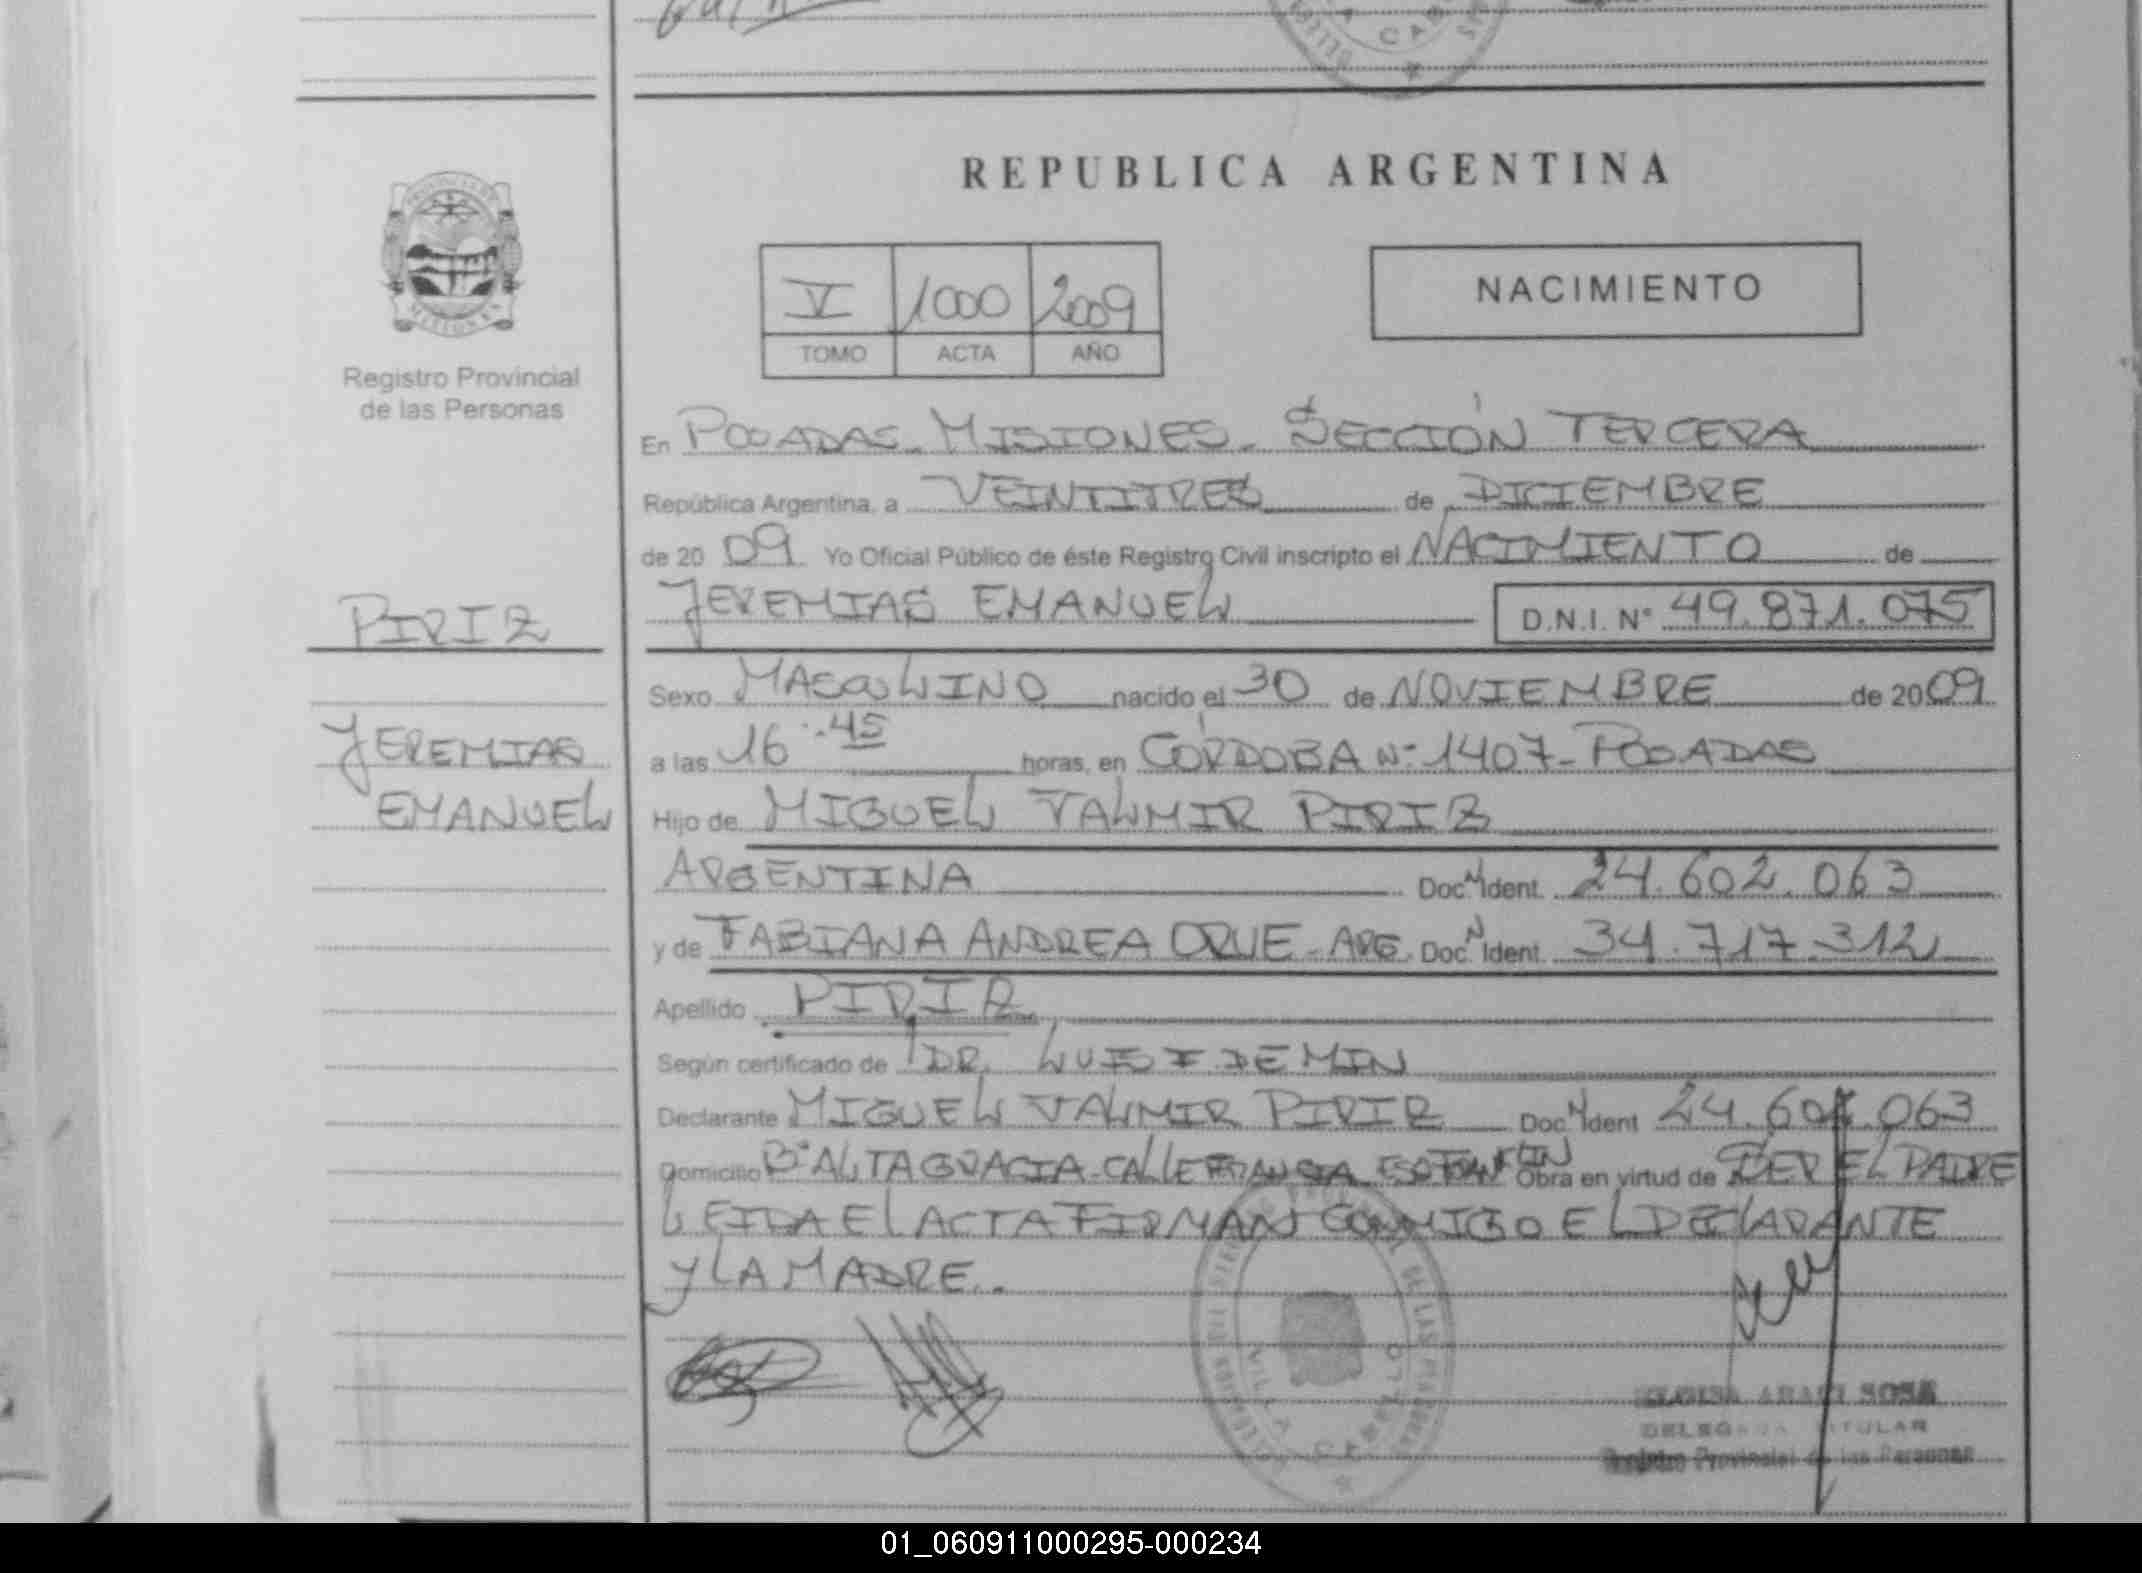 REPUBLICA ARGENTINA
V 1000 2009
TOMO ACTA AÑO
NACIMIENTO
Registro Provincial
de las Personas
En POSADAS - MISIONES - SECCIÓN TERCERA
República Argentina, a VEINTITRES de DICIEMBRE
de 2009 Yo Oficial Público de éste Registro Civil inscripto el NACIMIENTO de
JEREMIAS EMANUEL D.N.I. N° 49.871.075
PIRIZ
JEREMIAS
EMANUEL
Sexo MASCULINO nacido el 30 de NOVIEMBRE de 2009
a las 16:45 horas, en CÓRDOBA N° 1407 - POSADAS
Hijo de MIGUEL VALMIR PIRIZ
ARGENTINA Doc. N Ident. 24.602.063
y de FABIANA ANDREA ORUE - ARG. Doc. N Ident. 34.717.312
Apellido PIRIZ
Según certificado de DR. LUIS F. DEMIN
Declarante MIGUEL VALMIR PIRIZ Doc. N Ident 24.602.063
Domicilio B° ALTA GRACIA - CALLE Obra en virtud de SER EL PADRE
LEIDA EL ACTA FIRMAN CONMIGO EL DECLARANTE
Y LA MADRE..
VILLA CABELLO
ARACI SOSA
DELEGADA TITULAR
Registro Provincial de las Personas
01_060911000295-000234